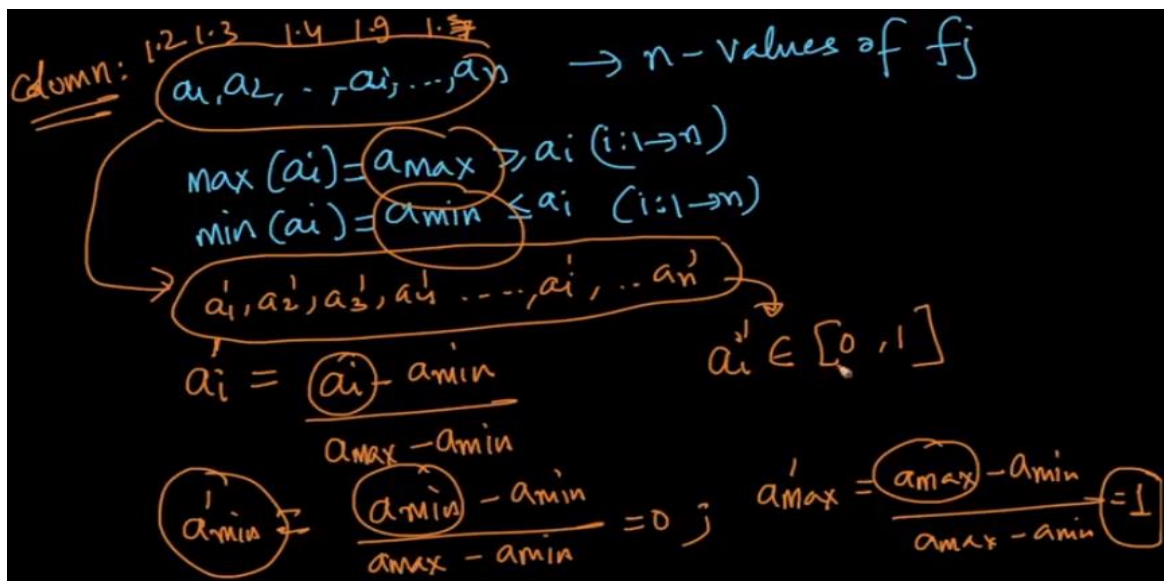 1.2 1.3 1.4 1.9 1.5
Column: a1, a2, .., ai, ..., an → n-values of fj
max (ai) = amax ≥ ai (i:1→n)
min (ai) = amin ≤ ai (i:1→n)
a1', a2', a3', a4' ...., ai', .. an'
ai' = (ai - amin) / (amax - amin)
ai' ∈ [0, 1]
amin' = (amin - amin) / (amax - amin) = 0 ; amax' = (amax - amin) / (amax - amin) = 1